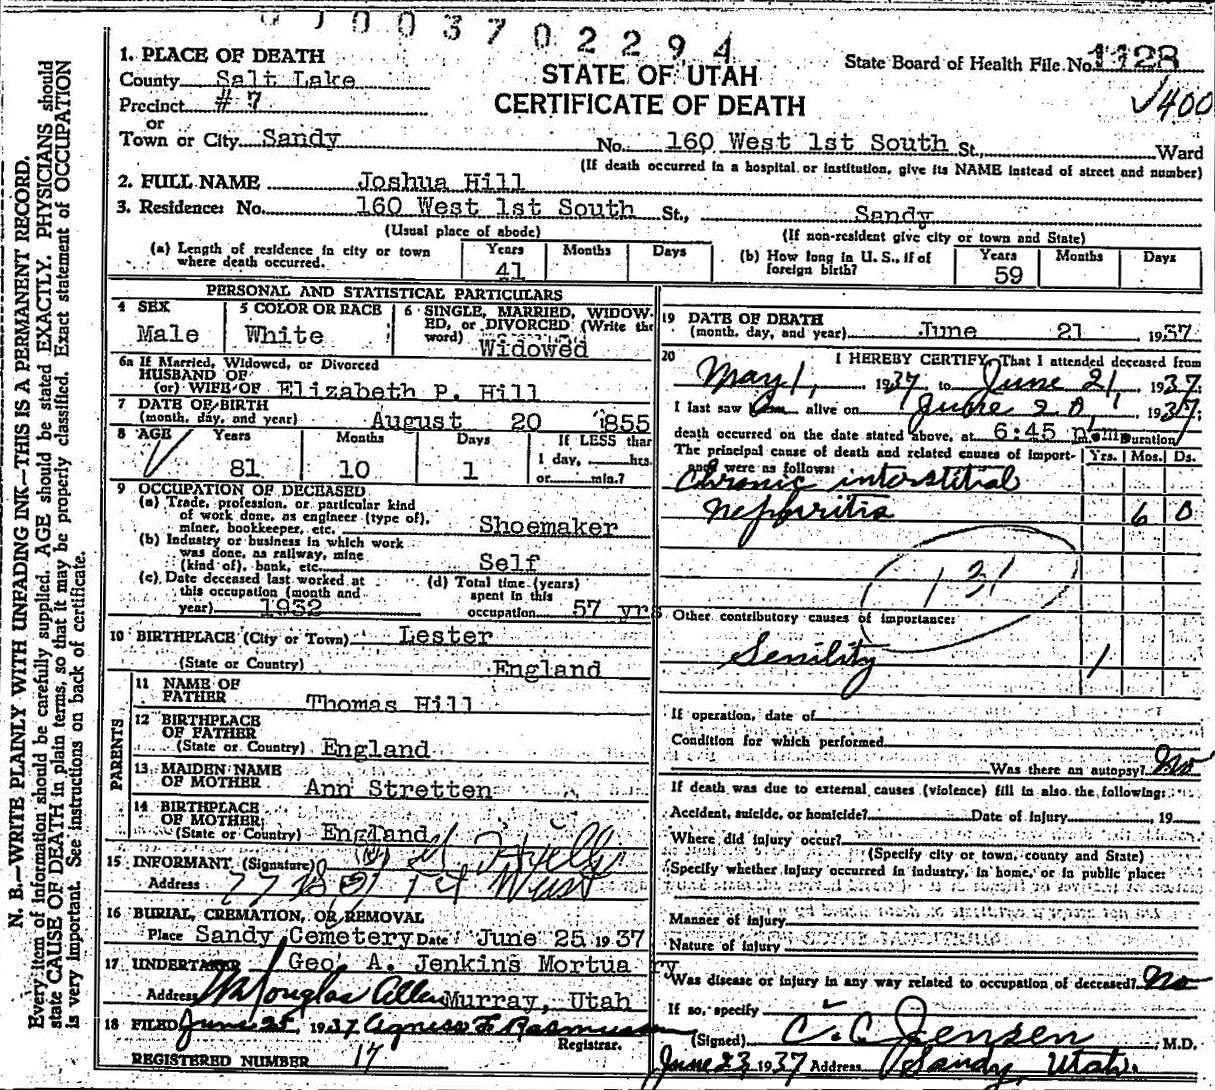 0003702294
1. PLACE OF DEATH
County Salt Lake
Precinct # 7
or
Town or City Sandy
STATE OF UTAH
CERTIFICATE OF DEATH
State Board of Health File No. 1128
400
No. 160 West 1st South St. Ward
(If death occurred in a hospital or institution, give its NAME instead of street and number)
2. FULL NAME Joshua Hill
3. Residence: No. 160 West 1st South St., Sandy
(Usual place of abode) (If non-resident give city or town and State)
(a) Length of residence in city or town where death occurred. Years 41 Months Days
(b) How long in U. S., if of foreign birth? Years 59 Months Days
PERSONAL AND STATISTICAL PARTICULARS
4 SEX Male
5 COLOR OR RACE White
6 SINGLE, MARRIED, WIDOWED, or DIVORCED (Write the word) Widowed
6a If Married, Widowed, or Divorced
HUSBAND OF
(or) WIFE OF Elizabeth P. Hill
7 DATE OF BIRTH
(month, day, and year) August 20 1855
8 AGE Years 81 Months 10 Days 1 If LESS than 1 day, hrs. or min.?
9 OCCUPATION OF DECEASED
(a) Trade, profession, or particular kind
of work done, as engineer (type of),
miner, bookkeeper, etc. Shoemaker
(b) Industry or business in which work
was done, as railway, mine
(kind of), bank, etc. Self
(c) Date deceased last worked at
this occupation (month and
year) 1932
(d) Total time (years)
spent in this
occupation 57 yrs
10 BIRTHPLACE (City or Town) Lester
(State or Country) England
PARENTS
11 NAME OF
FATHER Thomas Hill
12 BIRTHPLACE
OF FATHER
(State or Country) England
13 MAIDEN NAME
OF MOTHER Ann Stretten
14 BIRTHPLACE
OF MOTHER
(State or Country) England
15 INFORMANT (Signature)
Address West
16 BURIAL, CREMATION, OR REMOVAL
Place Sandy Cemetery Date June 25 1937
17 UNDERTAKER Geo. A. Jenkins Mortuary
Address Douglas Allen Murray, Utah
18 FILED June 25, 1937 Agness F Rasmussen
Registrar.
REGISTERED NUMBER 17
19 DATE OF DEATH
(month, day, and year) June 21 1937
20 I HEREBY CERTIFY, That I attended deceased from
May 1, 1937 to June 21, 1937
I last saw alive on June 20, 1937;
death occurred on the date stated above, at 6:45 m. Duration
The principal cause of death and related causes of importance were as follows: Yrs. Mos. Ds.
Chronic interstitial
Nephritis 6 0
131
Other contributory causes of importance:
Senility 1
If operation, date of
Condition for which performed
Was there an autopsy? No
If death was due to external causes (violence) fill in also the following:
Accident, suicide, or homicide? Date of injury , 19
Where did injury occur?
(Specify city or town, county and State)
Specify whether injury occurred in industry, in home, or in public place:
Manner of injury
Nature of injury
Was disease or injury in any way related to occupation of deceased? No
If so, specify
(Signed) C. C. Jensen, M.D.
June 23 1937 Address Sandy, Utah.
N. B.—WRITE PLAINLY WITH UNFADING INK—THIS IS A PERMANENT RECORD.
Every item of information should be carefully supplied. AGE should be stated EXACTLY. PHYSICIANS should
state CAUSE OF DEATH in plain terms, so that it may be properly classified. Exact statement of OCCUPATION
is very important. See instructions on back of certificate.